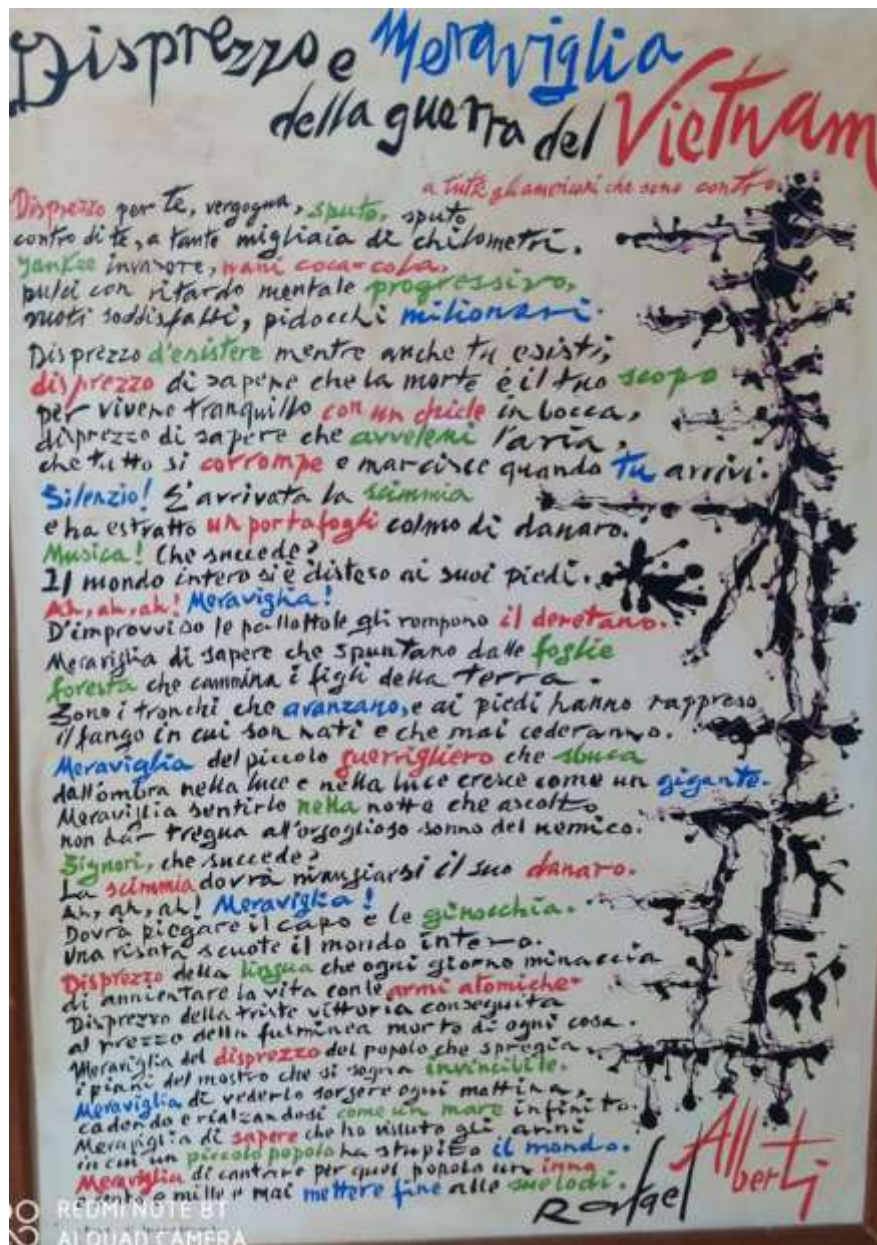 Disprezzo e Meraviglia
della guerra del Vietnam
a tutti gli americani che sono contro
Disprezzo per te, vergogna, sputo, sputo
contro di te, a tante migliaia di chilometri.
Yankee invasore, nani coca-cola,
pulci con ritardo mentale progressivo,
vuoti soddisfatti, pidocchi milionari.
Disprezzo d'esistere mentre anche tu esisti,
disprezzo di sapere che la morte è il tuo scopo
per vivere tranquillo con un chicle in bocca,
disprezzo di sapere che avveleni l'aria,
che tutto si corrompe e marcisce quando tu arrivi.
Silenzio! E' arrivata la scimmia
e ha estratto un portafogli colmo di danaro.
Musica! Che succede?
Il mondo intero si è disteso ai suoi piedi.
Ah, ah, ah! Meraviglia!
D'improvviso le pallottole gli rompono il deretano.
Meraviglia di sapere che spuntano dalle foglie
foresta che cammina i figli della terra.
Sono i tronchi che avanzano, e ai piedi hanno rappreso
il fango in cui son nati e che mai cederanno.
Meraviglia del piccolo guerrigliero che sbuca
dall'ombra nella luce e nella luce cresce come un gigante.
Meraviglia sentirlo nella notte che ascolto
non dar tregua all'orgoglioso sonno del nemico.
Signori, che succede?
La scimmia dovrà mangiarsi il suo danaro.
Ah, ah, ah! Meraviglia!
Dovrà piegare il capo e le ginocchia.
Una risata scuote il mondo intero.
Disprezzo della lingua che ogni giorno minaccia
di annientare la vita con le armi atomiche.
Disprezzo della triste vittoria conseguita
al prezzo della fulminea morte di ogni cosa.
Meraviglia del disprezzo del popolo che spregia
i piani del mostro che si sogna invincibile.
Meraviglia di vederlo sorgere ogni mattina,
cadendo e rialzandosi come un mare infinito.
Meraviglia di sapere che ho vissuto gli anni
in cui un piccolo popolo ha stupito il mondo.
Meraviglia di cantare per quel popolo un inno
e cento e mille e mai mettere fine alle melodi.
Rafael Alberti
REDMI NOTE 8T
AI QUAD CAMERA